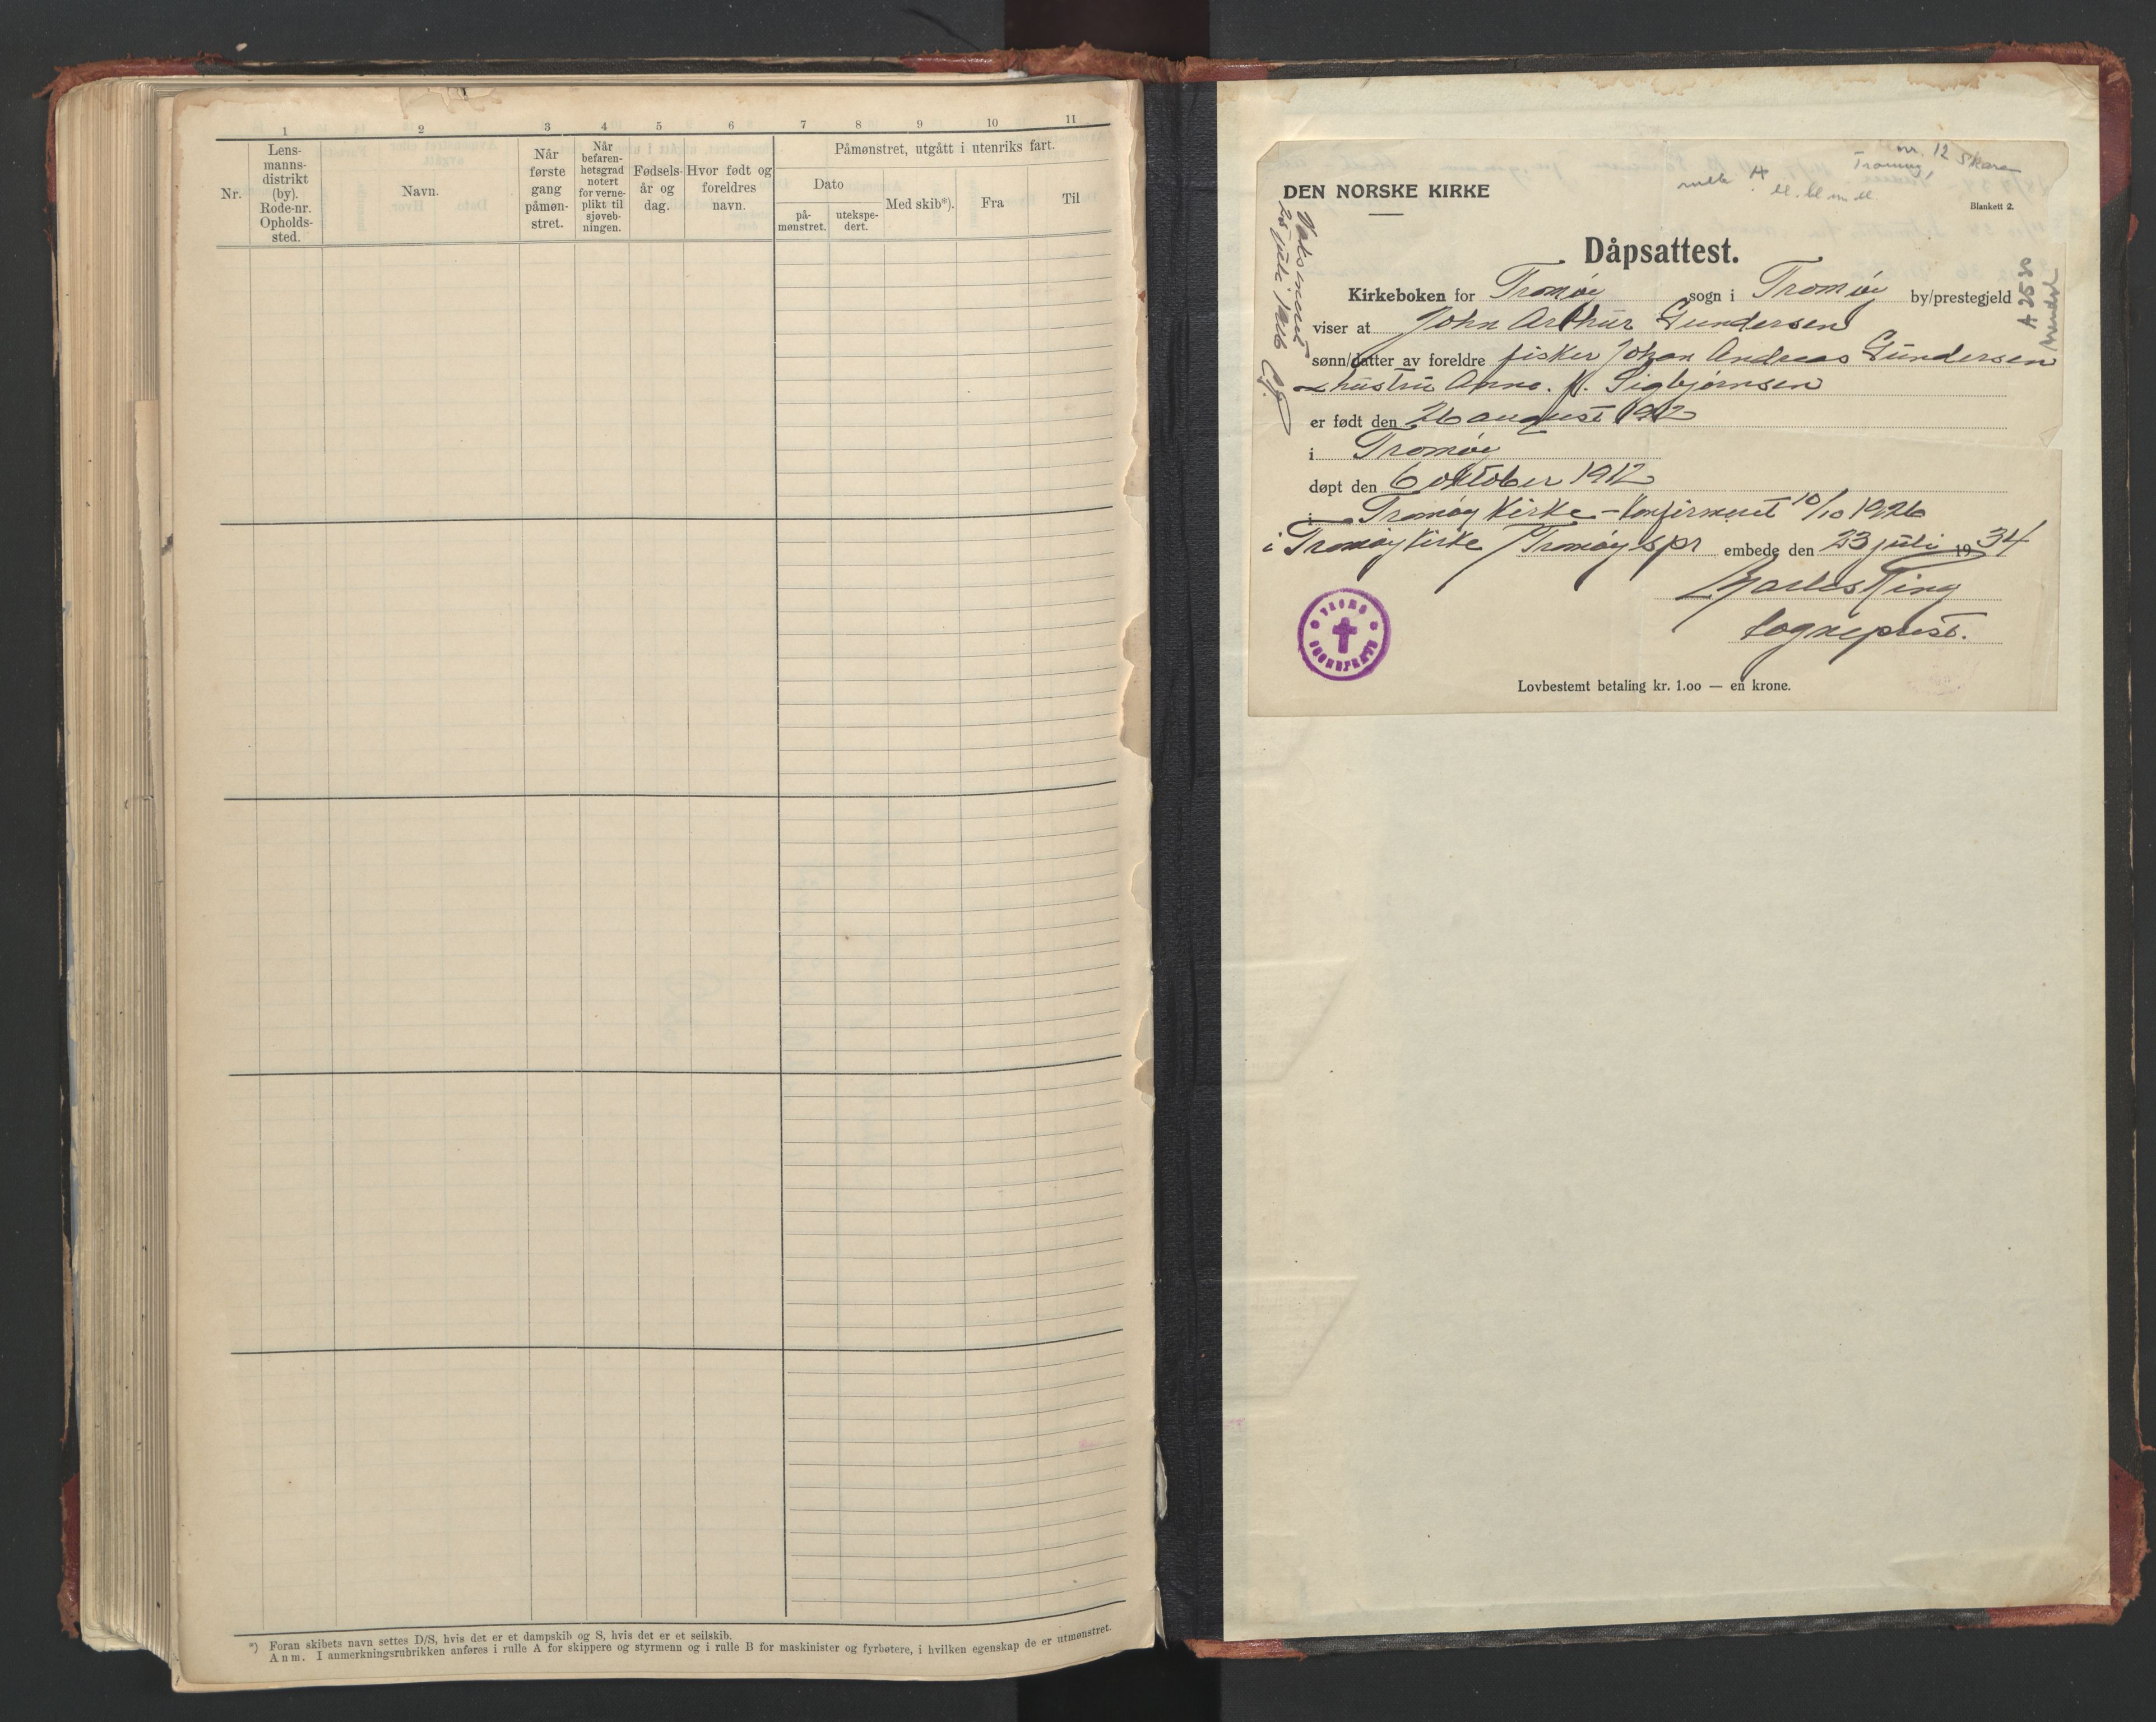 1 2 3 4 5 6 7 8 9 10 11
Nr.
Lens-
manns-
distrikt
(by).
Rode-nr.
Opholds-
sted.
Navn.
Når
første
gang
påmøn-
stret.
Når
befaren-
hetsgrad
notert
for verne-
plikt til
sjøveb-
ningen.
Fødsels-
år og
dag.
Hvor født og
foreldres
navn.
Påmønstret, utgått i utenriks fart.
Dato
på-
mønstret.
utekspe-
dert.
Med skib*).
Fra
Til
*) Foran skibets navn settes D/S, hvis det er et dampskib og S, hvis det er et seilskib.
Anm. I anmerkningsrubrikken anføres i rulle A for skippere og styrmenn og i rulle B for maskinister og fyrbøtere, i hvilken egenskap de er utmønstret.
nr. 12 Skare
Tromøy
rulle A
DEN NORSKE KIRKE
Blankett 2.
25 juli 1916
A 2530
Arendal
Dåpsattest.
Kirkeboken for Tromøy sogn i Tromøy by/prestegjeld
viser at John Arthur Gundersen
sønn/datter av foreldre fisker Johan Andreas Gundersen
hustru Anna. f. Sigbjørnsen
er født den 26 august 1912
i Tromøy
døpt den 6 oktober 1912
i Tromøy Kirke - konfirmeret 10/10 1926
i Tromøy Kirke / Tromøy spr embede den 23 juli 1934
Charles Ring
sogneprest.
TROMØ
SOGNEPREST
Lovbestemt betaling kr. 1.00 — en krone.